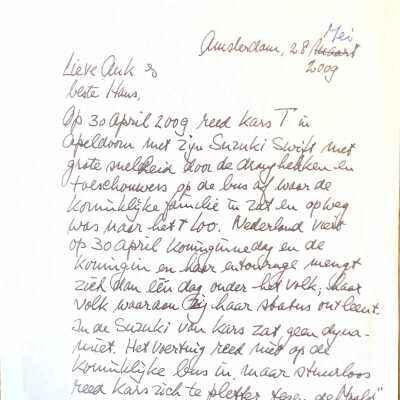 Mei
Amsterdam, 28 maart
2009
Lieve Auk &
beste Hans,
Op 30 April 2009 reed Kars T in
Apeldoorn met zijn Suzuki Swift met
grote snelheid door de dranghekken en
toeschouwers op de bus af waar de
koninklijke familie in zat en op weg
was naar het Loo. Nederland viert
op 30 april Koninginnedag en de
koningin en haar entourage mengt
zich dan één dag onder het volk; haar
volk waaraan zij haar status ontleent.
In de Suzuki van Kars zat geen dyna-
miet. Het voertuig reed niet op de
koninklijke bus in, maar stuurloos
reed Kars zich te pletter tegen de Naald"